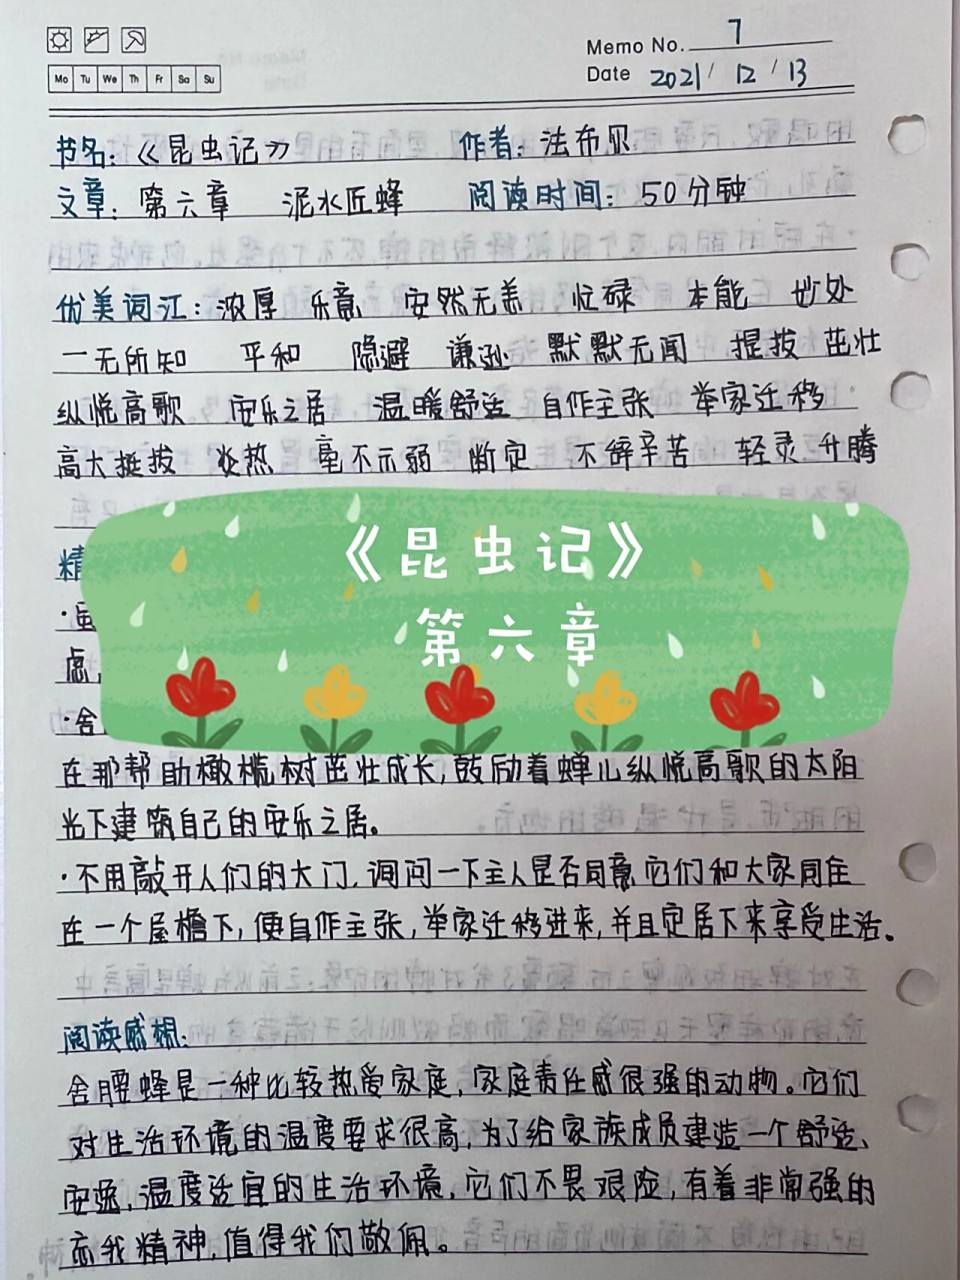 Memo No. 7
Mo Tu We Th Fr Sa Su
Date 2021 / 12 / 13
书名：《昆虫记》 作者：法布尔
文章：第六章 泥水匠蜂 阅读时间：50分钟
优美词汇：浓厚 乐意 安然无恙 忙碌 本能 妙处
一无所知 平和 隐避 谦逊 默默无闻 挺拔 茁壮
纵悦高歌 安乐之居 温暖舒适 自作主张 举家迁移
高大挺拔 炎热 毫不示弱 断定 不辞辛苦 轻灵 升腾
《昆虫记》
第六章
精
·虽
虑，
·舍
在那帮助橄榄树茁壮成长，鼓励着蝉儿纵悦高歌的太阳
光下建筑自己的安乐之居。
·不用敲开人们的大门，询问一下主人是否同意它们和大家同住
在一个屋檐下，便自作主张，举家迁移进来，并且定居下来享受生活。
阅读感想：
舍腰蜂是一种比较热爱家庭，家庭责任感很强的动物。它们
对生活环境的温度要求很高，为了给家族成员建造一个舒适、
安逸，温度适宜的生活环境，它们不畏艰险，有着非常强的
忘我精神，值得我们敬佩。